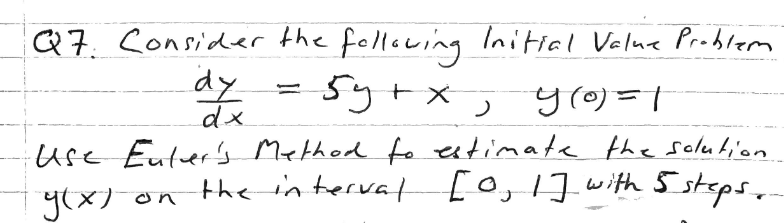 Q7. Consider the following Initial Value Problem
dy/dx = 5y + x, y(0)=1
Use Euler's Method to estimate the solution
y(x) on the interval [0, 1] with 5 steps.